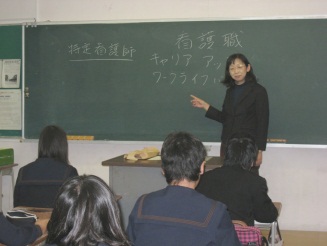 特定看護師
看護職
キャリア アッ
ワークライフ